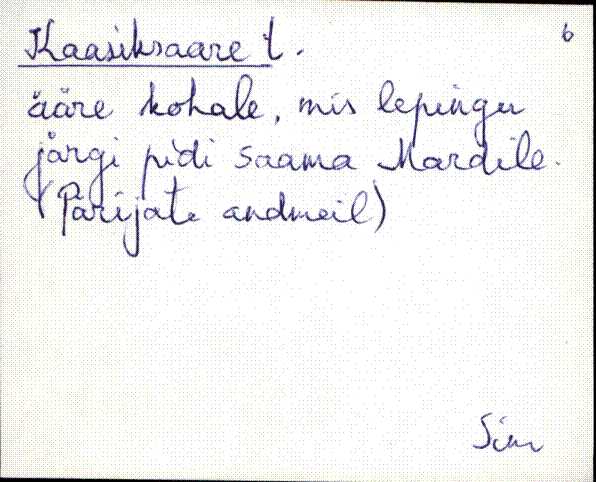 Kaasiksaare t.
6
ääre kohale, mis lepingu
järgi pidi saama Mardile.
(Pärijate andmeil)
Sim